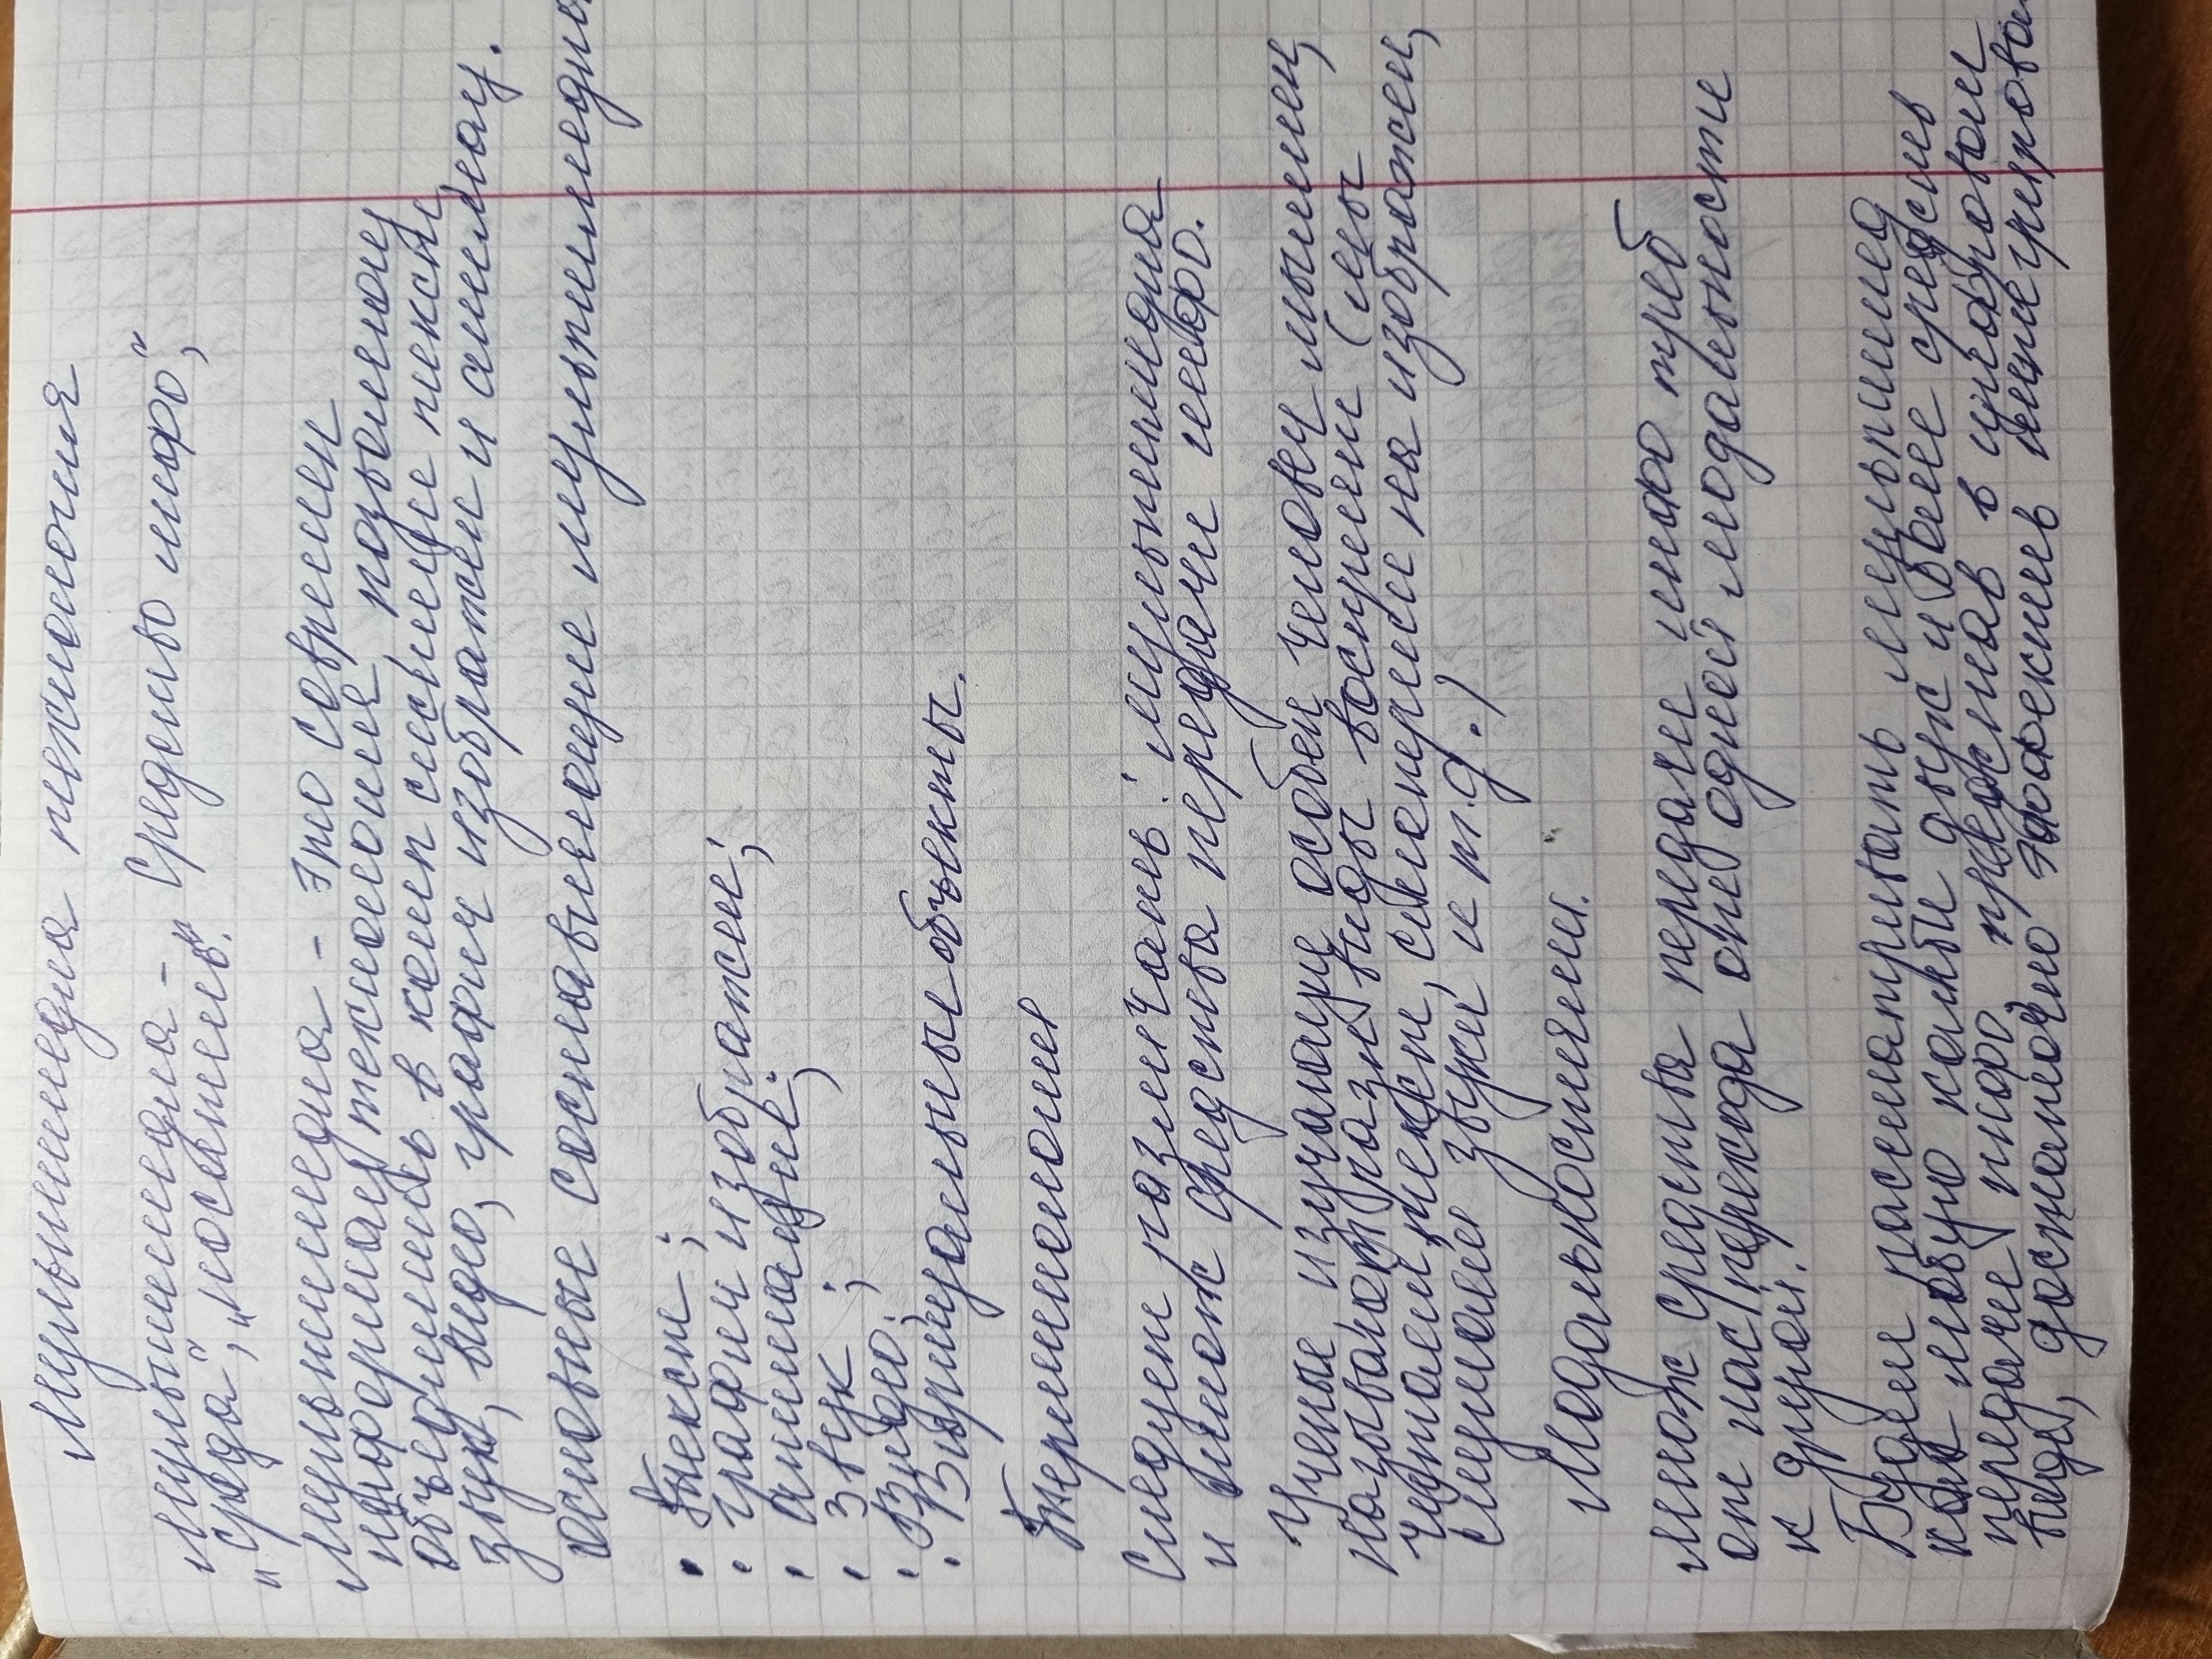 Мультимедиа технология
Мультимедиа - „средство инфо",
„среда", „носитель".
Мультимедиа - это современ
информац технология, позволяющ
объединить в комп системе текст,
звук, видео, графич изображен и анимац.
основные составляющие мультимедиа.
• Текст;
• график изображен;
• анимацие;
• Звук ;
• Видео;
• Виртуальные объекты.
Терминология
Следует различать: мультимедиа
и множ средства передачи инфо.
Ученые, изучающие особен человеч мышлен,
называют разл виды восприят (мы
читаем текст, смотерим на изображен,
слушаем звуки и т.д.)
Модальностями.
множ средства передачи инфо треб
от нас перехода от одной модальности
к другой.
Будем рассматривать мультимед
как любую комби двух и более средств
передачи инфо, представ в цифровом
виде, достаточно эффектив интегрирова